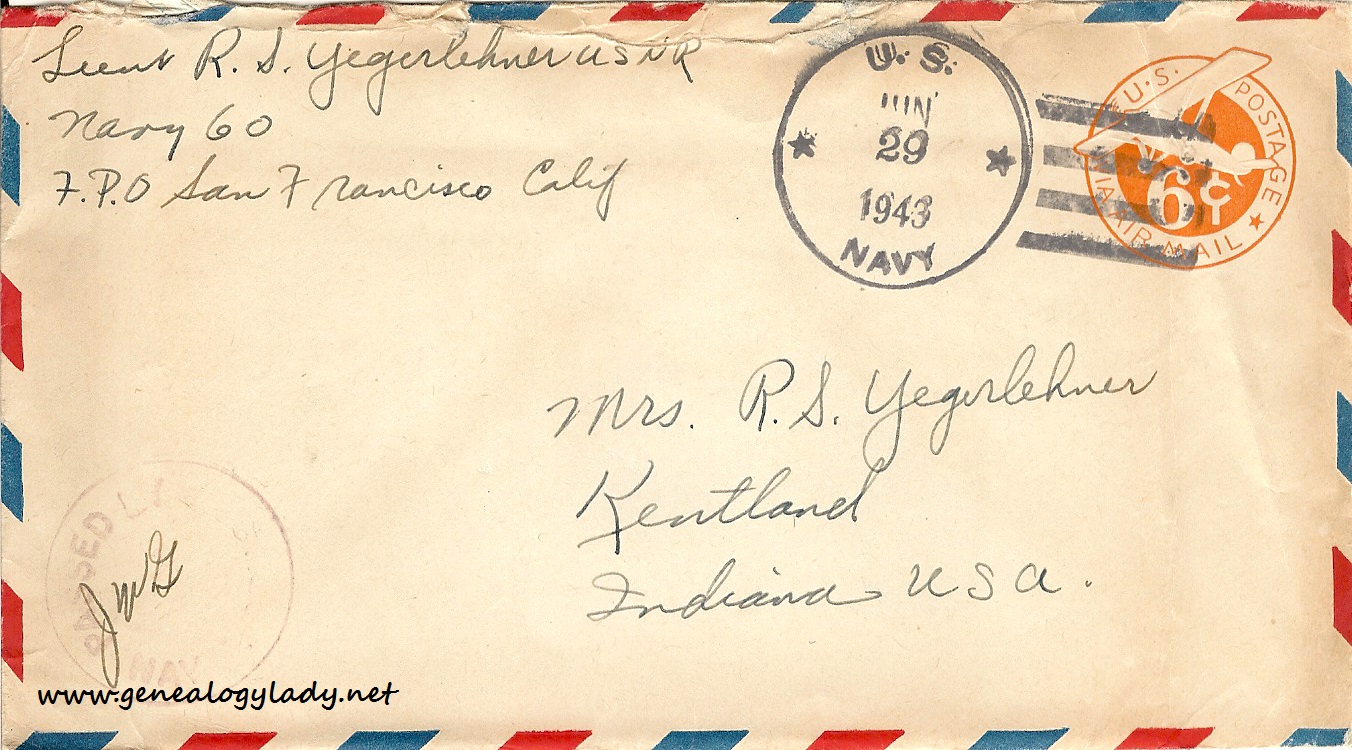 Lieut R. S. Yegerlehner USNR
Navy 60
F.P.O San Francisco Calif
U.S.
JUN
29
1943
NAVY
U.S. POSTAGE
6¢
VIA AIR MAIL
Mrs. R. S. Yegerlehner
Kentland
Indiana USA.
PASSED
JWG
NAV
www.genealogylady.net